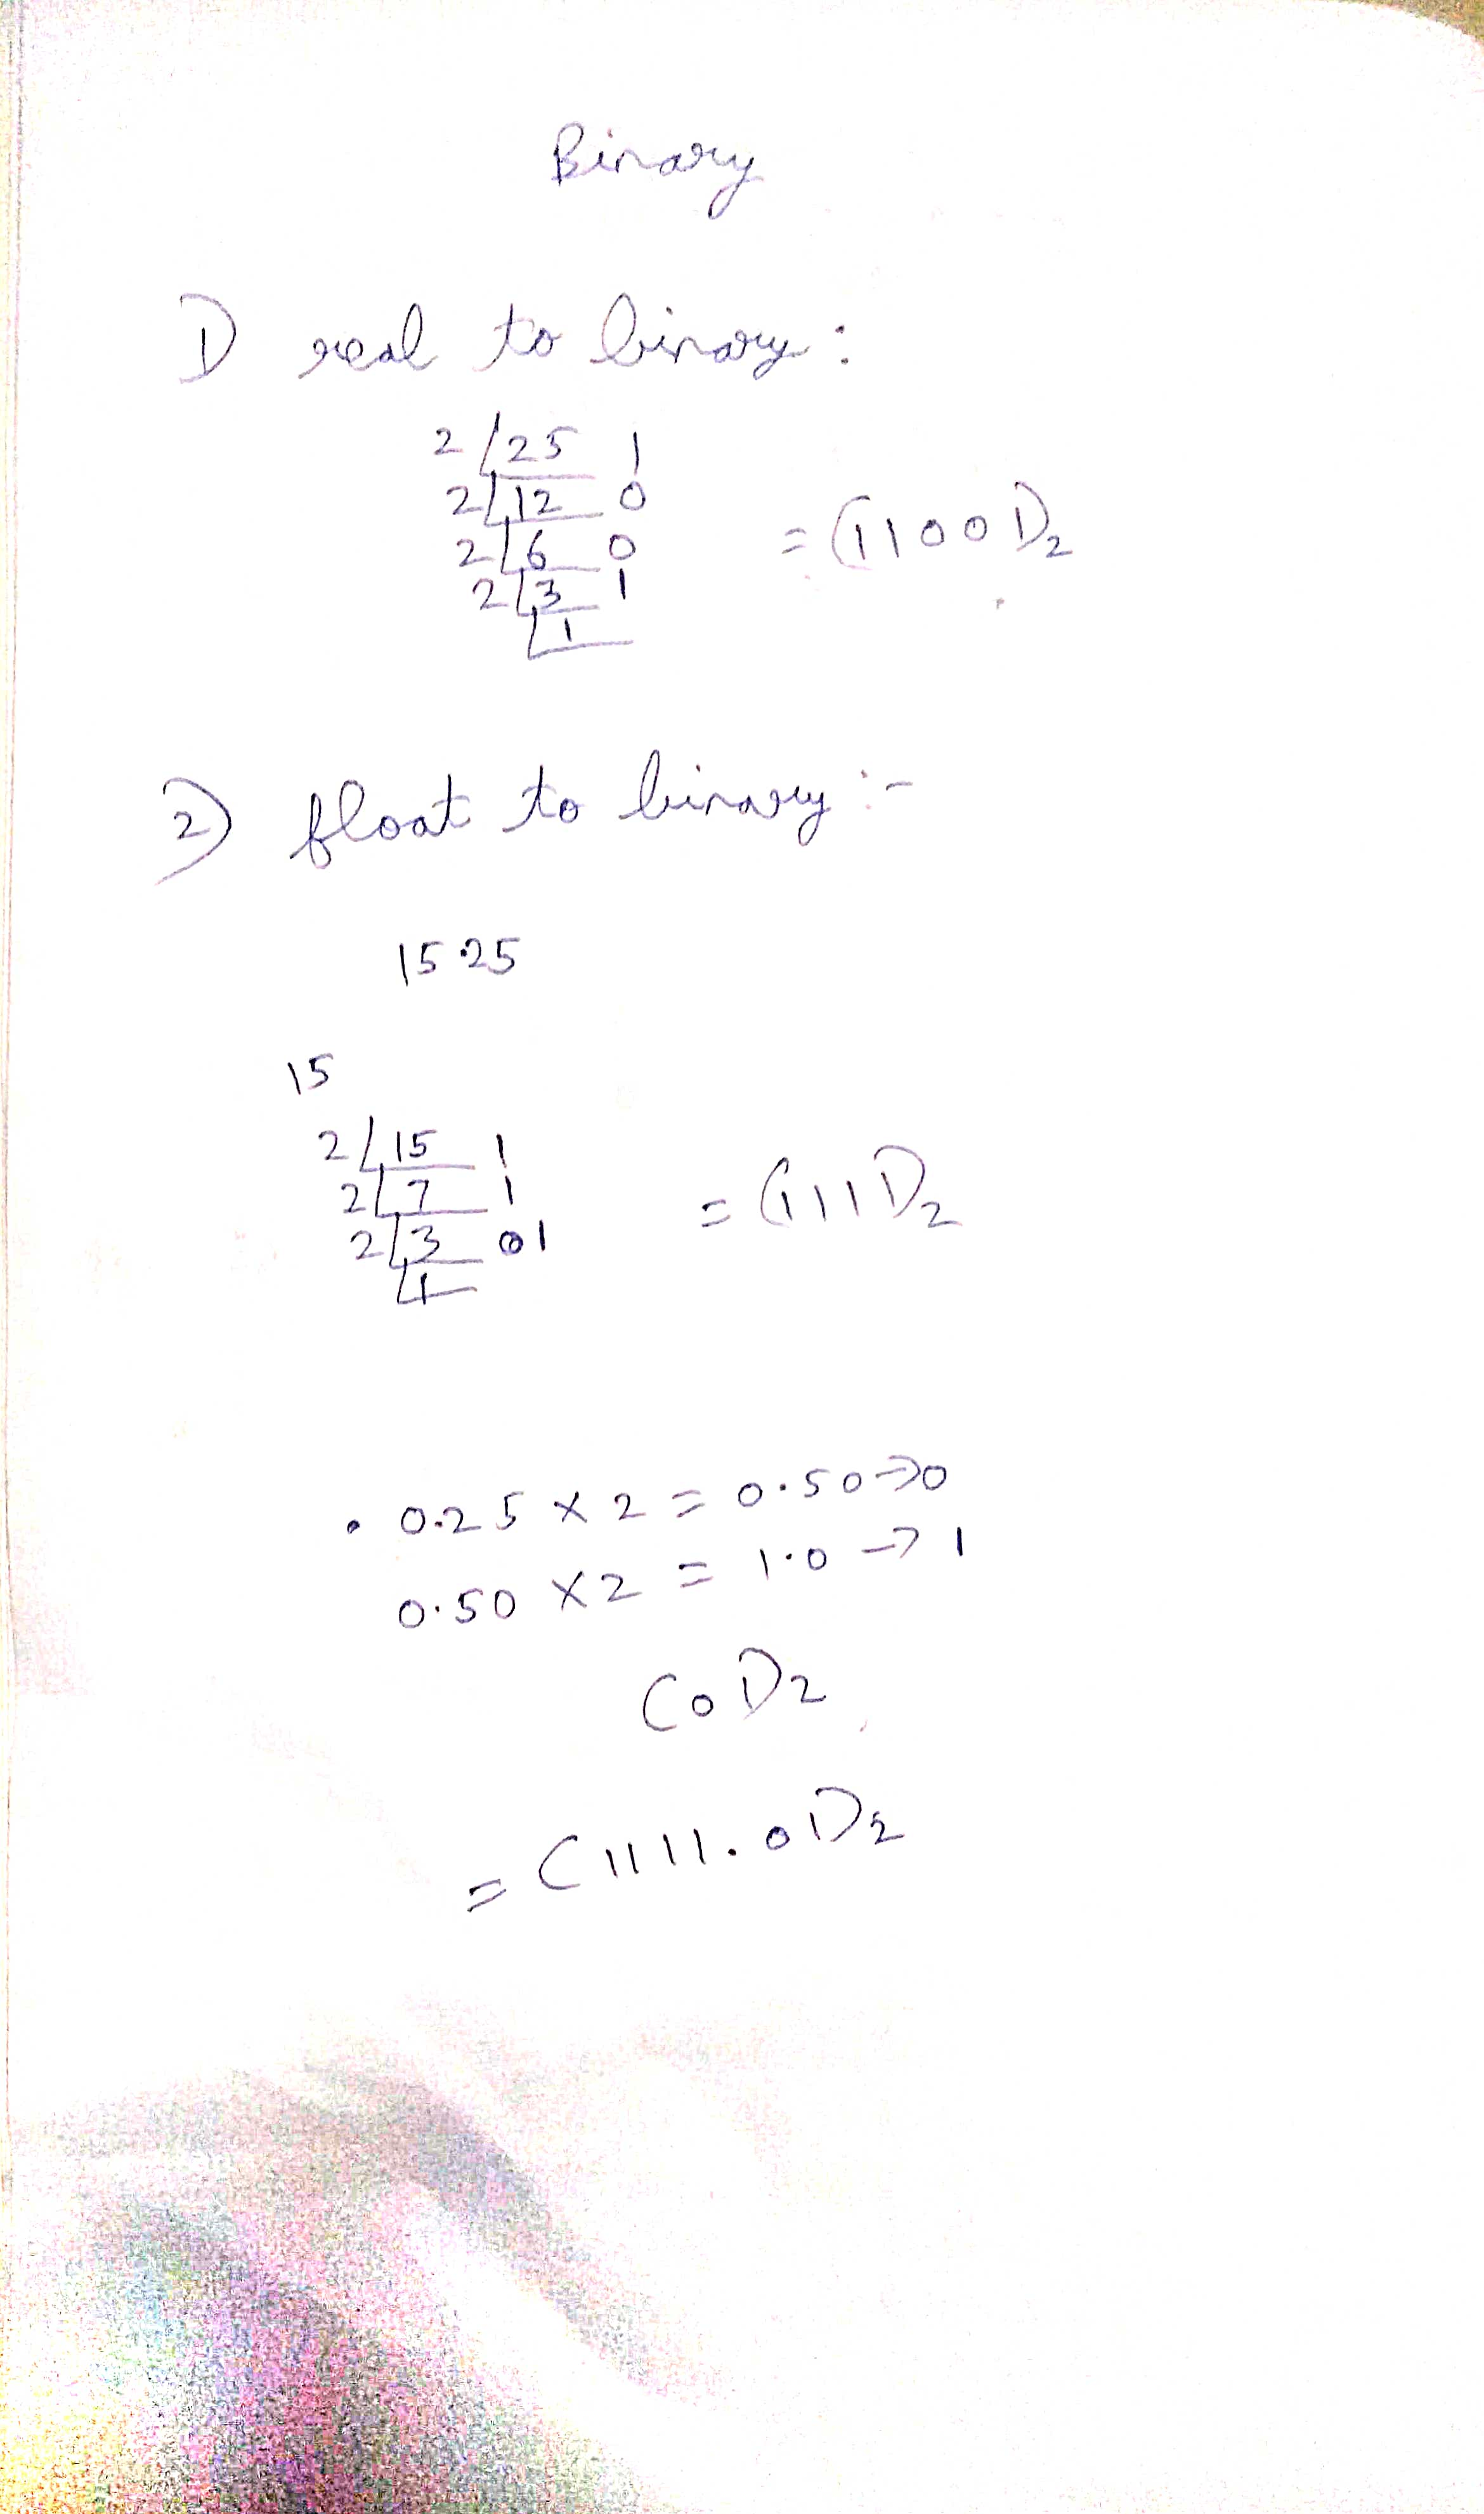 Binary
1) real to binary:
2 25 1
2 12 0
2 6 0
2 3 1
1
= (11001)2
2) float to binary:-
15.25
15
2 15 1
2 7 1
2 3 01
1
= (1111)2
• 0.25 x 2 = 0.50 → 0
0.50 x 2 = 1.0 → 1
(01)2
= (1111.01)2